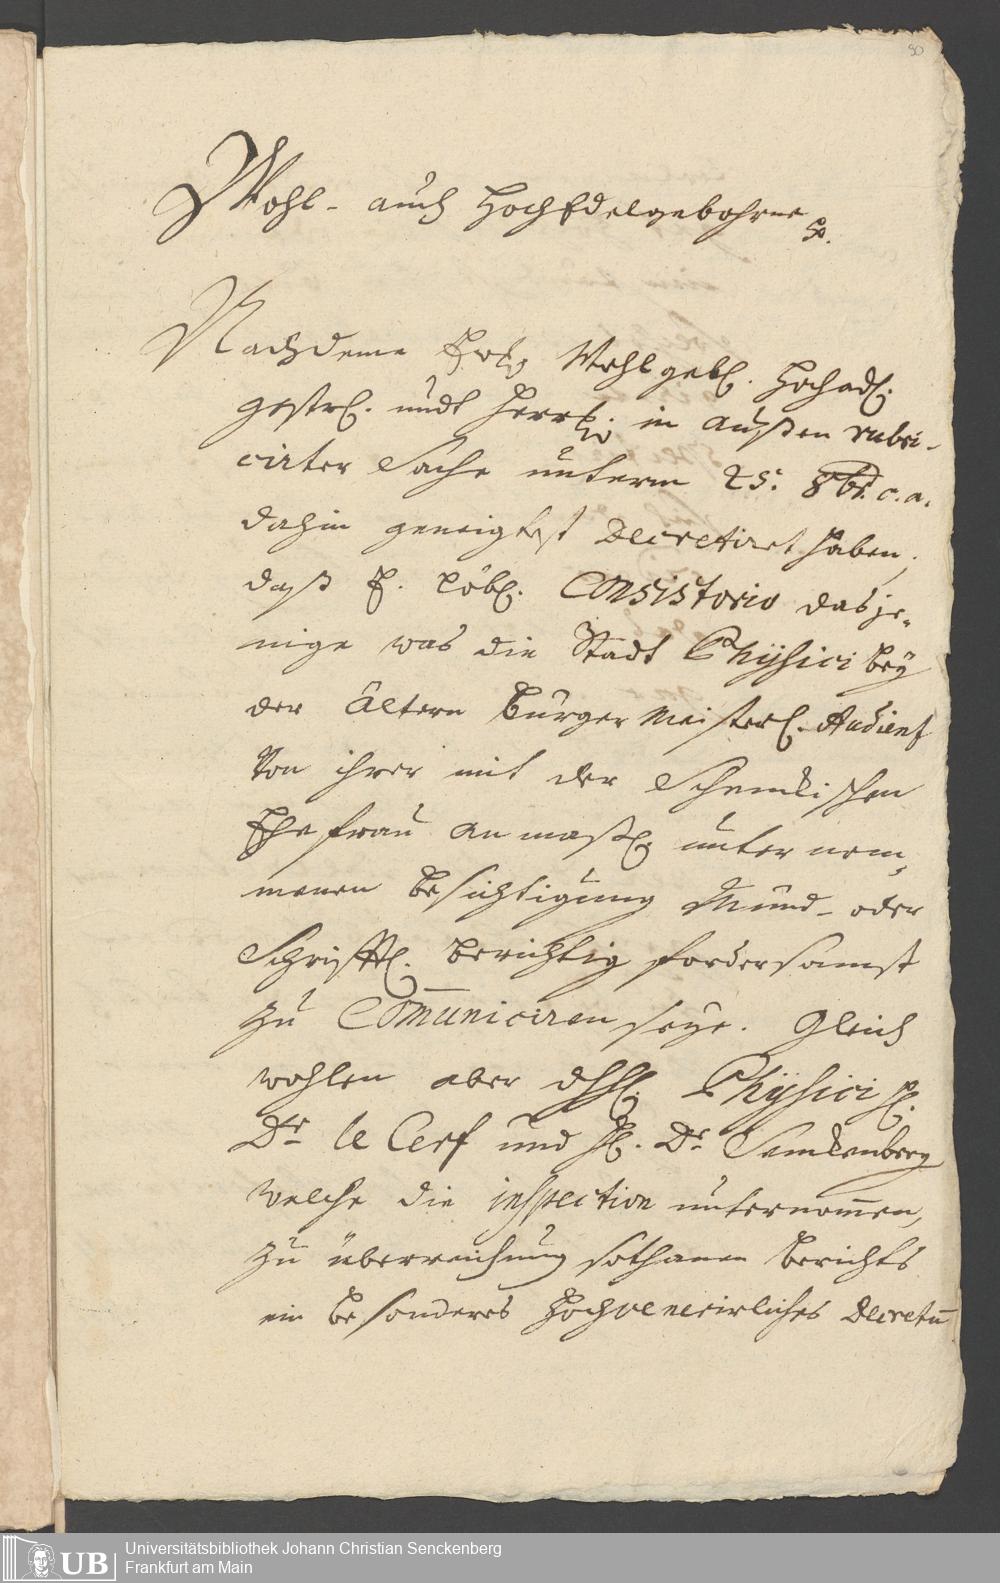 90
Wohl- auch HochEdelgebohrne
p.
Nachdeme Wohlgeb. Hochad.
gestr. undt Herrl. in außen rubri-
cirter Sache unterm 25. 8br. c. a.
dahin geneigtest Decretiret haben,
daß E. Löbl. Consistorio dasje-
nige was die Stadt Physici bey
der ältern Bürger Meisterl. Audienz
Von ihrer mit der Schenckischen
Ehefrau anmaßl. unternom-
menen Besichtigung Mund- oder
Schrifftl. berichtig fordersamst
zu Com̅uniciren seye. Gleich
wohlen aber Physici H.
Dr. le Cerf und H. Dr. Senckenberg
welche die inspection unternom̅en,
zu überreichung sothanen berichts
ein besonderes Hochvenerirliches Decretu̅
UB
Universitätsbibliothek Johann Christian Senckenberg
Frankfurt am Main